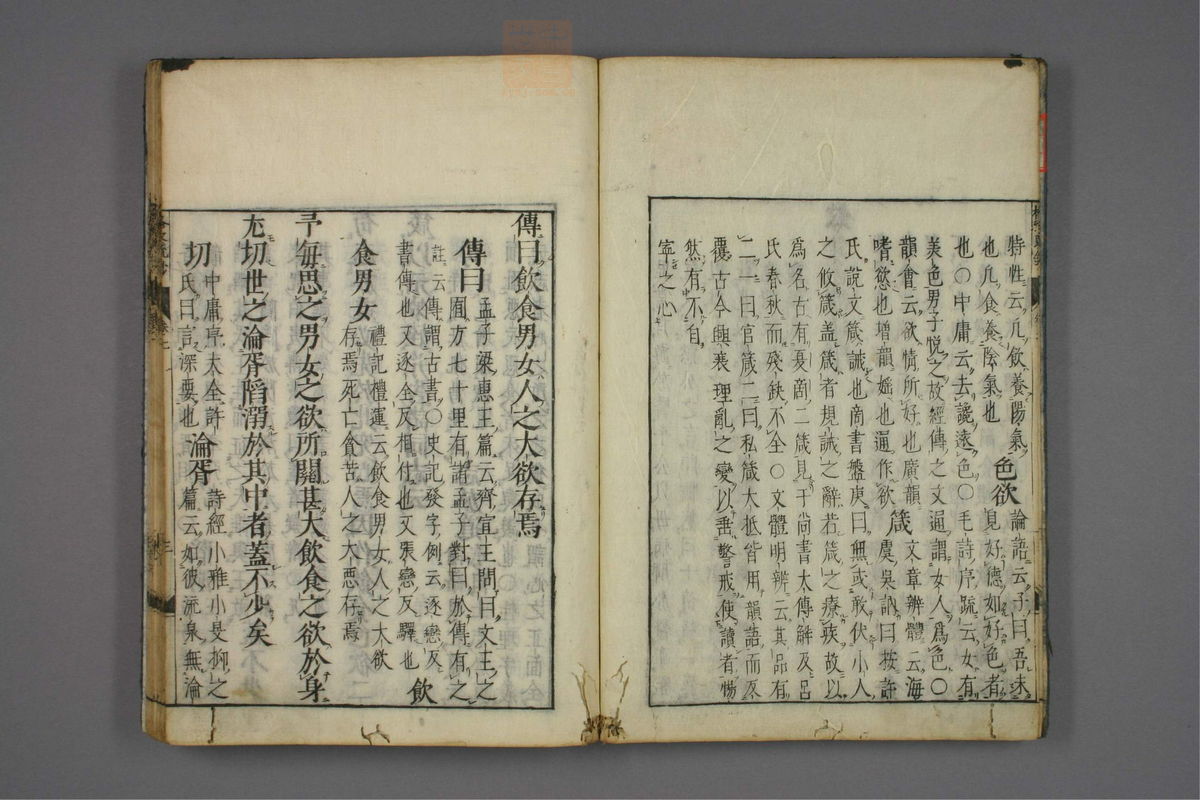 特性云凡飲養陽氣
也凡食養陰氣也 色欲 論語云子曰吾未
見好德如好色者
也○中庸云去讒遠色○毛詩序疏云女有
美色男子悅之故經傳之文通謂女人爲色○
韻會云欲情所好也廣韻
嗜慾也增韻婬也通作欲 箴 文章辨體云海
虞吳訥曰按許
氏說文箴誡也商書盤庚曰無或敢伏小人
之攸箴盖箴者規誡之辭若箴之療疾故以
爲名古有夏商二箴見于尚書大傳解及呂
氏春秋而殘缺不全○文體明辨云其品有
二一曰官箴二曰私箴大抵皆用韻語而反
覆古今興衰理亂之變以垂警戒使讀者惕
然有不自
寧之心
傳曰飲食男女人之大欲存焉
傳曰 孟子梁惠王篇云齊宣王問曰文王之
囿方七十里有諸孟子對曰於傳有之
註云傳謂古書○史記發字例云逐戀反
書傳也又逐全反相付也又張戀反驛也 飲
食男女 禮記禮運云飲食男女人之大欲
存焉死亡貧苦人之大惡存焉
予每思之男女之欲所關甚大飲食之欲於身
尤切世之淪胥陷溺於其中者蓋不少矣
切 中庸序大全許
氏曰言深要也 淪胥 詩經小雅小旻抑之
篇云如彼流泉無淪